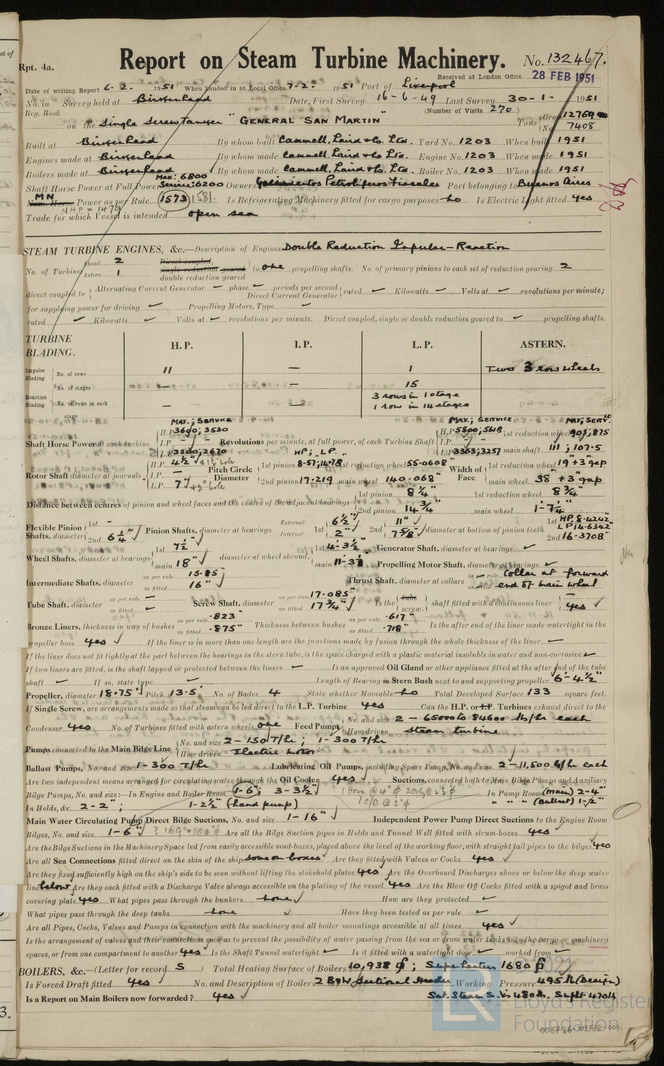 Rpt. 4a.
Report on Steam Turbine Machinery. No. 132467.
Received at London Office 28 FEB 1951
Date of writing Report 6. 2. 1951 When handed in at Local Office 7. 2. 1951 Port of Liverpool
No. in Survey held at Birkenhead Date, First Survey 16-6-49 Last Survey 30-1- 1951
Reg. Book (Number of Visits 270)
on the Single Screw Tanker "GENERAL SAN MARTIN" Tons Gross 12759 Net 7408
Built at Birkenhead By whom built Cammell, Laird & Co. Ltd. Yard No. 1203 When built 1951
Engines made at Birkenhead By whom made Cammell, Laird & Co. Ltd. Engine No. 1203 When made 1951
Boilers made at Birkenhead By whom made Cammell, Laird & Co. Ltd. Boiler No. 1203 When made 1951
Shaft Horse Power at Full Power Max: 6800 Service: 6200 Owners Port belonging to Buenos Aires
MN Power as per Rule 1573 Is Refrigerating Machinery fitted for cargo purposes No Is Electric Light fitted Yes
Trade for which Vessel is intended open sea
STEAM TURBINE ENGINES, &c.—Description of Engines Double Reduction Impulse-Reaction
No. of Turbines Ahead 2 Direct coupled, single reduction geared to one propelling shafts. No. of primary pinions to each set of reduction gearing 2
Astern 1 double reduction geared
direct coupled to Alternating Current Generator phase periods per second rated Kilowatts Volts at revolutions per minute;
Direct Current Generator
for supplying power for driving Propelling Motors, Type
rated Kilowatts Volts at revolutions per minute. Direct coupled, single or double reduction geared to propelling shafts.
TURBINE BLADING. H.P. I.P. L.P. ASTERN.
Impulse Blading No. of rows 11 — 1 Two 3 row wheels
Reaction Blading No. of stages — — 15
No. of rows in each stage — — 3 rows in 1 stage
1 row in 14 stages
MAX; SERVICE MAX; SERVICE MAX; SERV.
Shaft Horse Power at each turbine H.P. 3600; 3530 Revolutions per minute, at full power, of each Turbine Shaft H.P. 1st reduction wheel
I.P. — I.P. —
L.P. 3200; 2670 L.P. 3363; 3257 main shaft 111; 107.5
Rotor Shaft diameter at journals H.P. 4½" Pitch Circle Diameter 1st pinion 1st reduction wheel 55.0608" Width of Face 1st reduction wheel 19 + 3 gap
L.P. 7" 2nd pinion 17.219 main wheel 140.068" main wheel 38 + 3 gap
Distance between centres of pinion and wheel faces and the centre of the adjacent bearings 1st pinion 8¼" 1st reduction wheel 8¾"
2nd pinion 14¾" main wheel
Flexible Pinion Shafts, diameter 1st — 2nd 6¼" Pinion Shafts, diameter at bearings External 1st 6½" 2nd 11" diameter at bottom of pinion teeth 1st HP. 8.4242 LP 14.6342
Internal 1st 2" 2nd 16.3708"
Wheel Shafts, diameter at bearings 1st 7½" diameter at wheel shroud, 1st 4'-3½" Generator Shaft, diameter at bearings
main 18" main 11'-3¾" Propelling Motor Shaft, diameter at bearings
Intermediate Shafts, diameter as per rule 15.85 Thrust Shaft, diameter at collars as per rule Collar at forward
as fitted 16" as fitted end of main wheel
Tube Shaft, diameter as per rule — Screw Shaft, diameter as per rule 17.085 Is the tube screw shaft fitted with a continuous liner Yes
as fitted — as fitted 17¾"
Bronze Liners, thickness in way of bushes as per rule .823 Thickness between bushes as per rule .617 Is the after end of the liner made watertight in the
as fitted .875" as fitted
propeller boss Yes If the liner is in more than one length are the junctions made by fusion through the whole thickness of the liner.
If the liner does not fit tightly at the part between the bearings in the stern tube, is the space charged with a plastic material insoluble in water and non-corrosive
If two liners are fitted, is the shaft lapped or protected between the liners. Is an approved Oil Gland or other appliance fitted at the after end of the tube
shaft If so, state type. Length of Bearing in Stern Bush next to and supporting propeller 6'-4½"
Propeller, diameter 18.75' Pitch 13.5' No. of Blades 4 State whether Moveable No Total Developed Surface 133 square feet.
If Single Screw, are arrangements made so that steam can be led direct to the L.P. Turbine Yes Can the H.P. or I.P. Turbines exhaust direct to the
Condenser Yes No. of Turbines fitted with astern wheels one Feed Pumps No. and size 2 — 65000 to 84600 lb/hr each
How driven steam turbine
Pumps connected to the Main Bilge Line No. and size 2 - 150 T/hr; 1 - 300 T/hr
How driven Electric motor
Ballast Pumps, No. and size 1 - 300 T/hr Lubricating Oil Pumps, including Spare Pump, No. and size 2 - 11,500 G/hr each
Are two independent means arranged for circulating water through the Oil Cooler Yes Suctions, connected both to Main Bilge Pumps and Auxiliary
Bilge Pumps, No. and size:—In Engine and Boiler Room 1-6"; 3-3½" In Pump Room (main) 2-4"
In Holds, &c. 2-2"; 1-2½" (hand pump) " " " (Ballast) 1-½"
Main Water Circulating Pump Direct Bilge Suctions, No. and size 1-16" Independent Power Pump Direct Suctions to the Engine Room
Bilges, No. and size. 1-6" Are all the Bilge Suction pipes in Holds and Tunnel Well fitted with strum-boxes. Yes
Are the Bilge Suctions in the Machinery Space led from easily accessible mud-boxes, placed above the level of the working floor, with straight tail pipes to the bilges Yes
Are all Sea Connections fitted direct on the skin of the ship some on boxes Are they fitted with Valves or Cocks. Yes
Are they fixed sufficiently high on the ship's side to be seen without lifting the stokehold plates Yes Are the Overboard Discharges above or below the deep water
line below Are they each fitted with a Discharge Valve always accessible on the plating of the vessel Yes Are the Blow Off Cocks fitted with a spigot and brass
covering plate Yes What pipes pass through the bunkers None How are they protected
What pipes pass through the deep tanks None Have they been tested as per rule
Are all Pipes, Cocks, Valves and Pumps in connection with the machinery and all boiler mountings accessible at all times Yes
Is the arrangement of valves and their connections such as to prevent the possibility of water passing from the sea or from water tanks into the cargo or machinery
spaces, or from one compartment to another Yes Is the Shaft Tunnel watertight Is it fitted with a watertight door worked from
BOILERS, &c.—(Letter for record S) Total Heating Surface of Boilers 10,938 ; Superheaters 1680
Is Forced Draft fitted Yes No. and Description of Boilers 2 B&W Sectional Header Working Pressure 495 lb (Design)
Is a Report on Main Boilers now forwarded? Yes
Lloyd's Register
Foundation